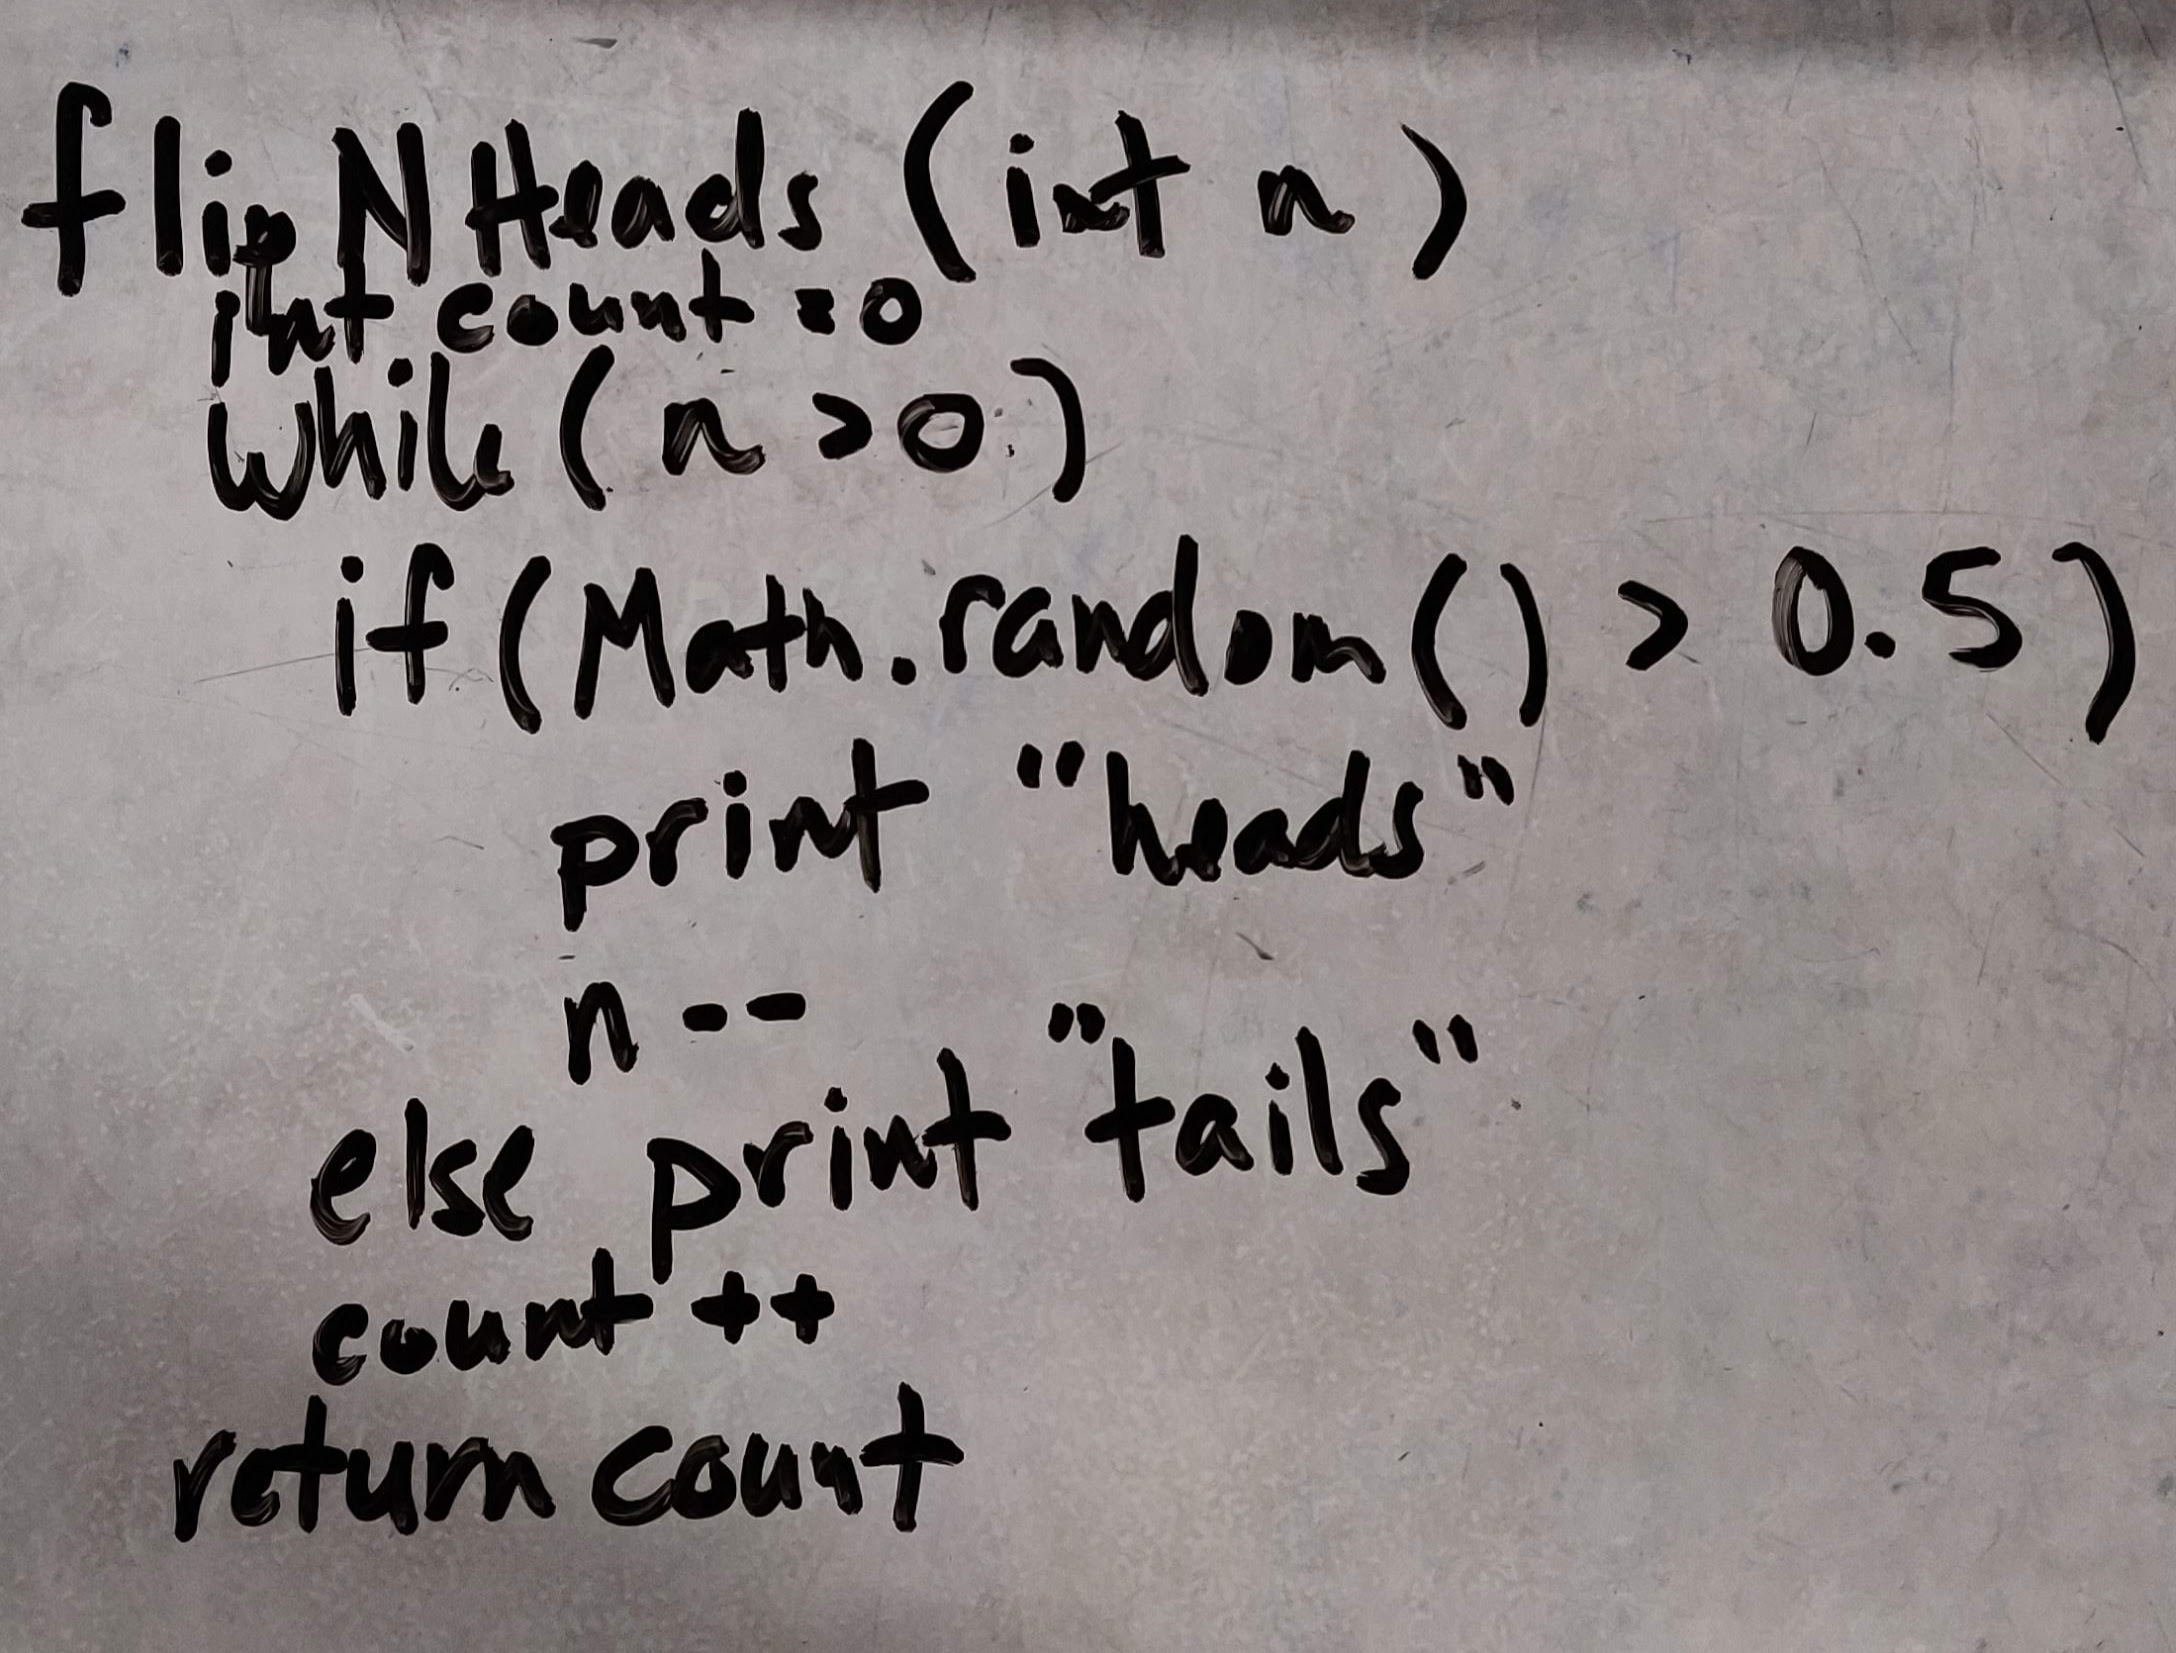 flipNHeads (int n)
int count = 0
while (n > 0)
if (Math.random() > 0.5)
print "heads"
n --
else print "tails"
count ++
return count